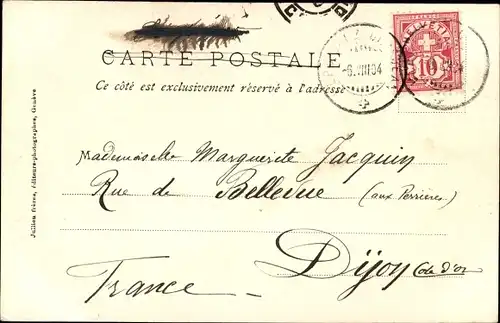 CARTE POSTALE
Ce côté est exclusivement réservé à l'adresse
HELVETIA
10
-6.VIII.04
Jullien frères, éditeurs-photographes, Genève
Mademoiselle Marguerite Jacquin
Rue de Bellevue (aux Perrières)
Dijon Côte d'or
France